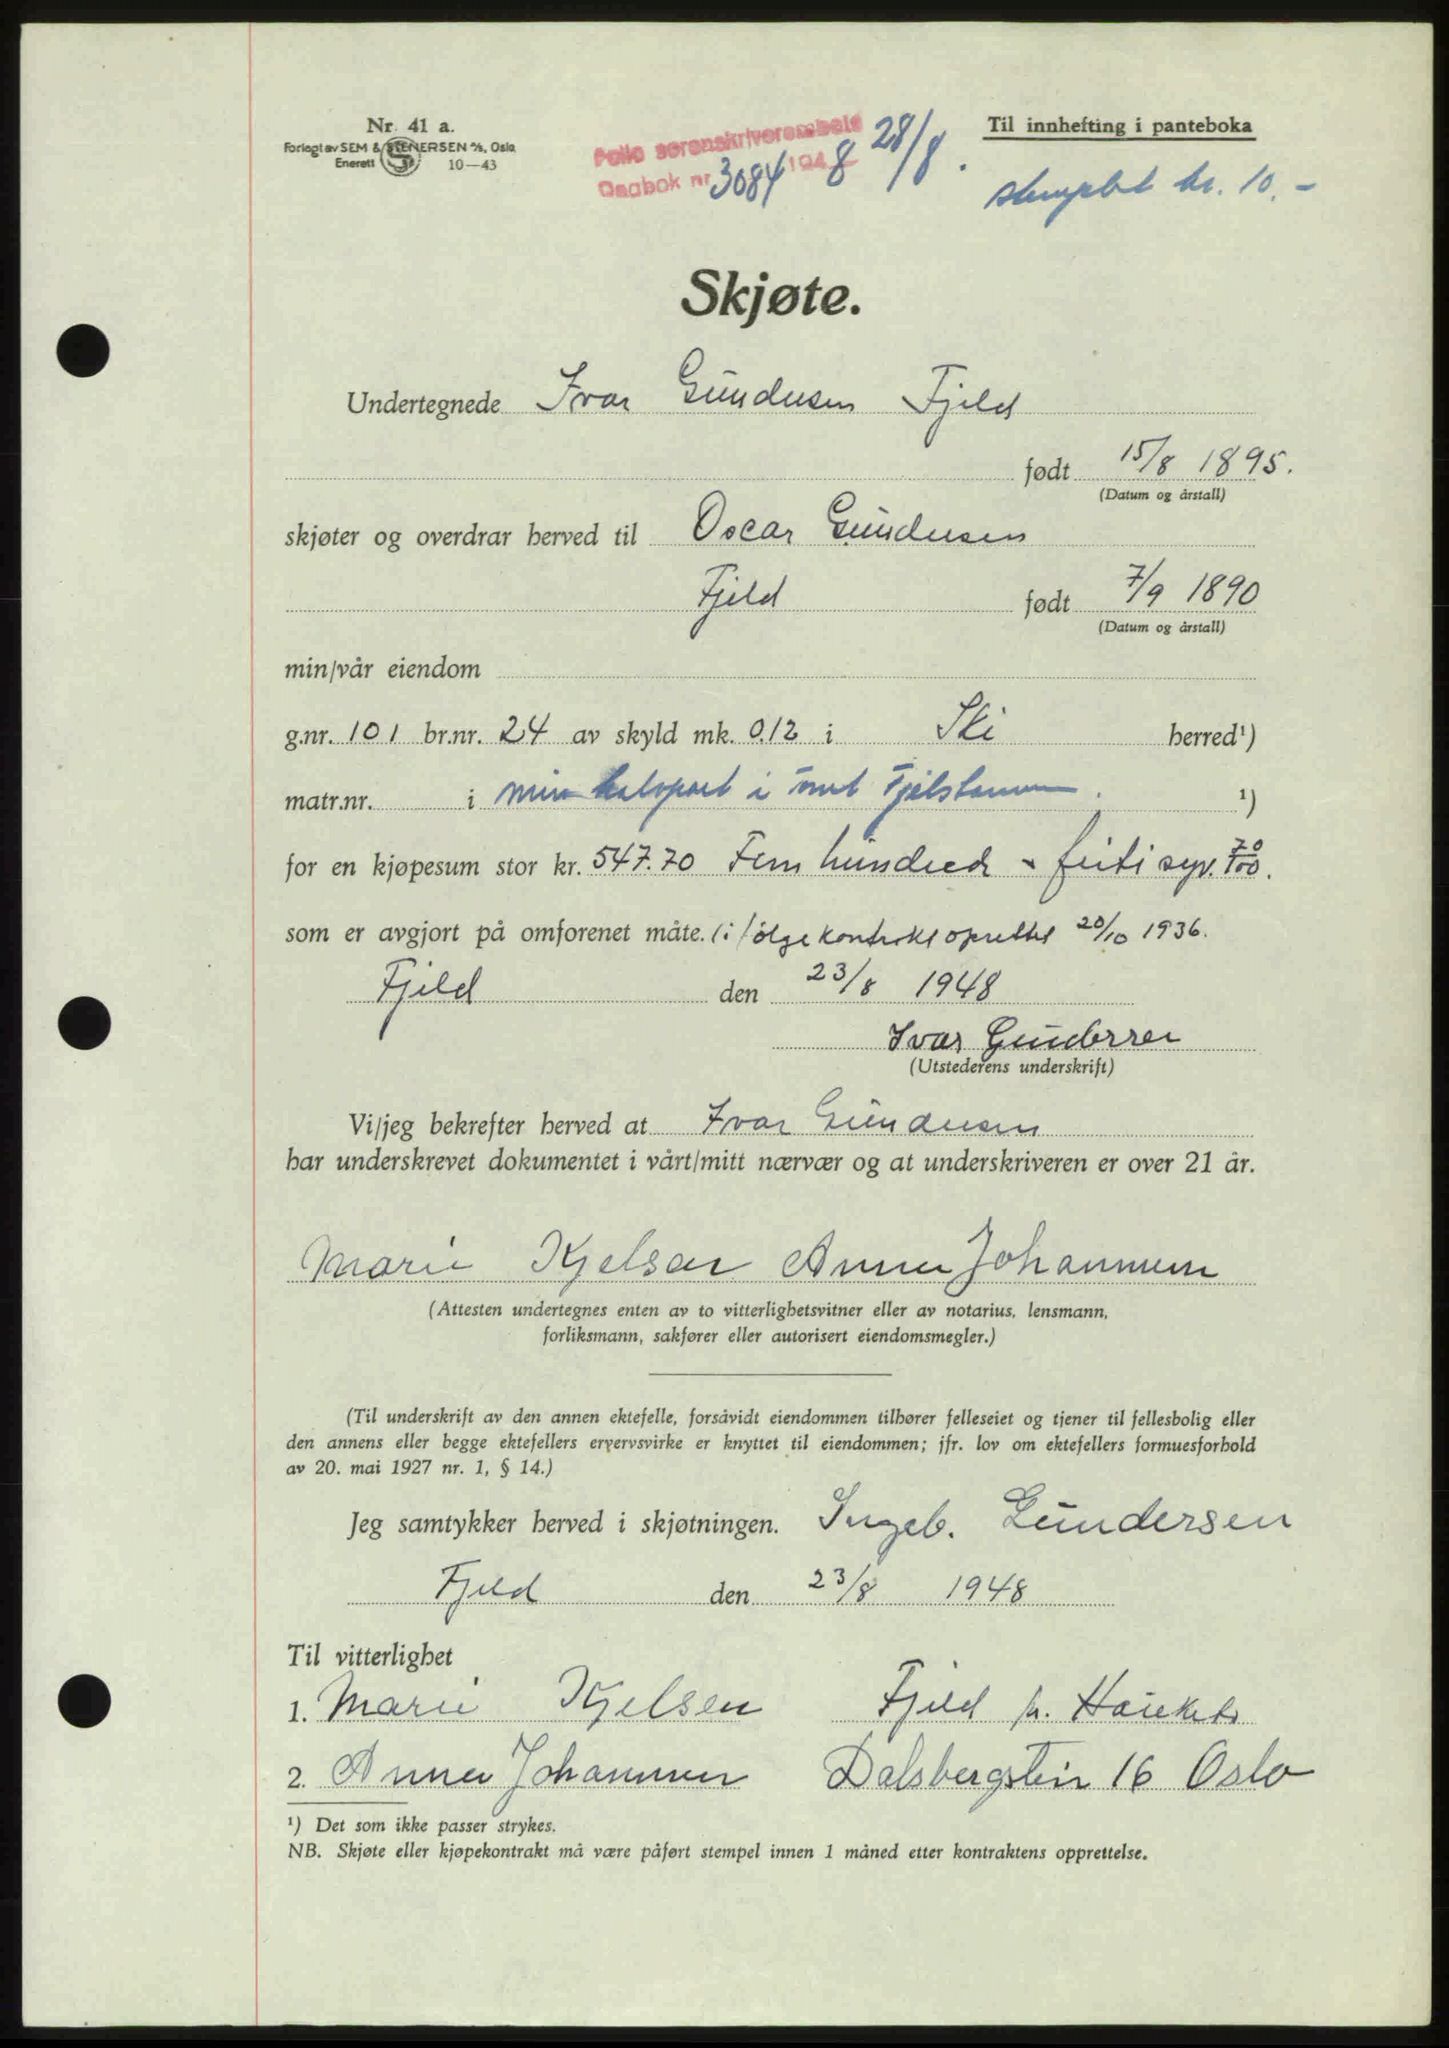 Nr. 41 a.
Forlagt av SEM & STENERSEN A/S, Oslo
Enerett 10—43
Follo sorenskriverembete
Dagbok nr. 3084 1948 28/8.
Til innhefting i panteboka
stemplet kr. 10.-
Skjøte.
Undertegnede Ivar Gundersen Fjeld
født 15/8 1895.
(Datum og årstall)
skjøter og overdrar herved til Oscar Gundersen
Fjeld født 7/9 1890
(Datum og årstall)
min/vår eiendom
g.nr. 101 br.nr. 24 av skyld mk. 0.12 i Ski herred¹)
matr.nr. i min halvpart i ¹)
for en kjøpesum stor kr. 547.70 Fem hundred - førti syv. 70/100.
som er avgjort på omforenet måte. (ifølge kontrakt oprettet 20/10 1936.
Fjeld den 23/8 1948
Ivar Gundersen
(Utstederens underskrift)
Vi/jeg bekrefter herved at Ivar Gundersen
har underskrevet dokumentet i vårt/mitt nærvær og at underskriveren er over 21 år.
Marie Kjelsen Anna Johannesen
(Attesten undertegnes enten av to vitterlighetsvitner eller av notarius, lensmann,
forliksmann, sakfører eller autorisert eiendomsmegler.)
(Til underskrift av den annen ektefelle, forsåvidt eiendommen tilhører felleseiet og tjener til fellesbolig eller
den annens eller begge ektefellers ervervsvirke er knyttet til eiendommen; jfr. lov om ektefellers formuesforhold
av 20. mai 1927 nr. 1, § 14.)
Jeg samtykker herved i skjøtningen. Ingeb. Gundersen
Fjeld den 23/8 1948
Til vitterlighet
1. Marie Kjelsen Fjeld
2. Anna Johannesen Dalsbergstien 16 Oslo
¹) Det som ikke passer strykes.
NB. Skjøte eller kjøpekontrakt må være påført stempel innen 1 måned etter kontraktens opprettelse.